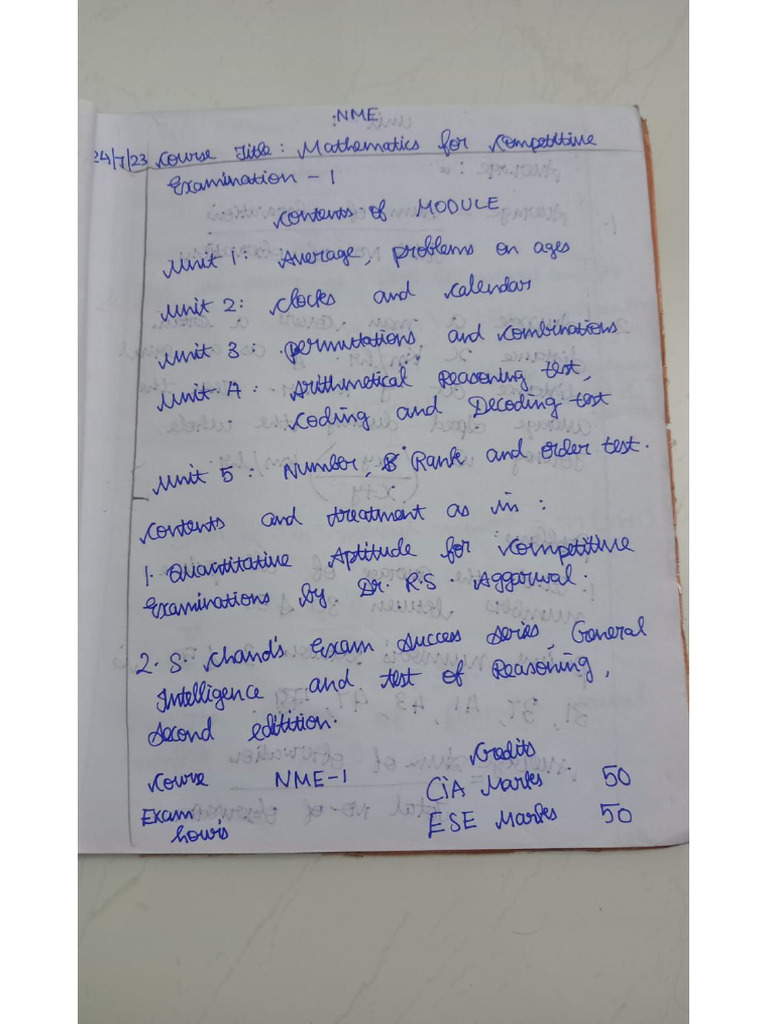 NME:
24/7/23 Course Title: Mathematics for Competitive
Examination - 1
Contents of MODULE
Unit 1: Average, problems on ages
Unit 2: Clocks and Calendar
Unit 3: permutations and Combinations
Unit 4: Arithmetical Reasoning test,
Coding and Decoding test
Unit 5: Number, Rank and order test.
Contents and treatment as in:
1. Quantitative Aptitude for Competitive
Examinations by Dr. R.S. Aggarwal.
2. S. Chand's Exam Success Series, General
Intelligence and test of Reasoning,
Second editition.
Credits
Course NME-1 CiA Marks 50
Exam ESE Marks 50
hours